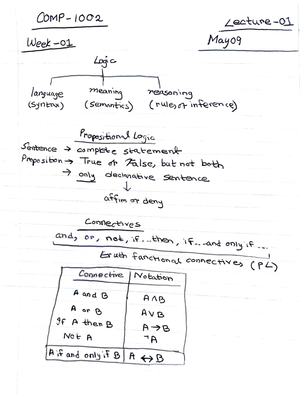 COMP-1002
Lecture-01
Week-01
May09
Logic
language meaning reasoning
(syntax) (semantics) (rules of inference)
Propositional Logic
Sentence → complete statement
Proposition → True or False, but not both
→ only declarative sentence
↓
affirm or deny
Connectives
and, or, not, if...then, if...and only if...
truth functional connectives (PL)
Connective Notation
A and B A∧B
A or B A∨B
If A then B A→B
Not A ¬A
A if and only if B A ↔ B